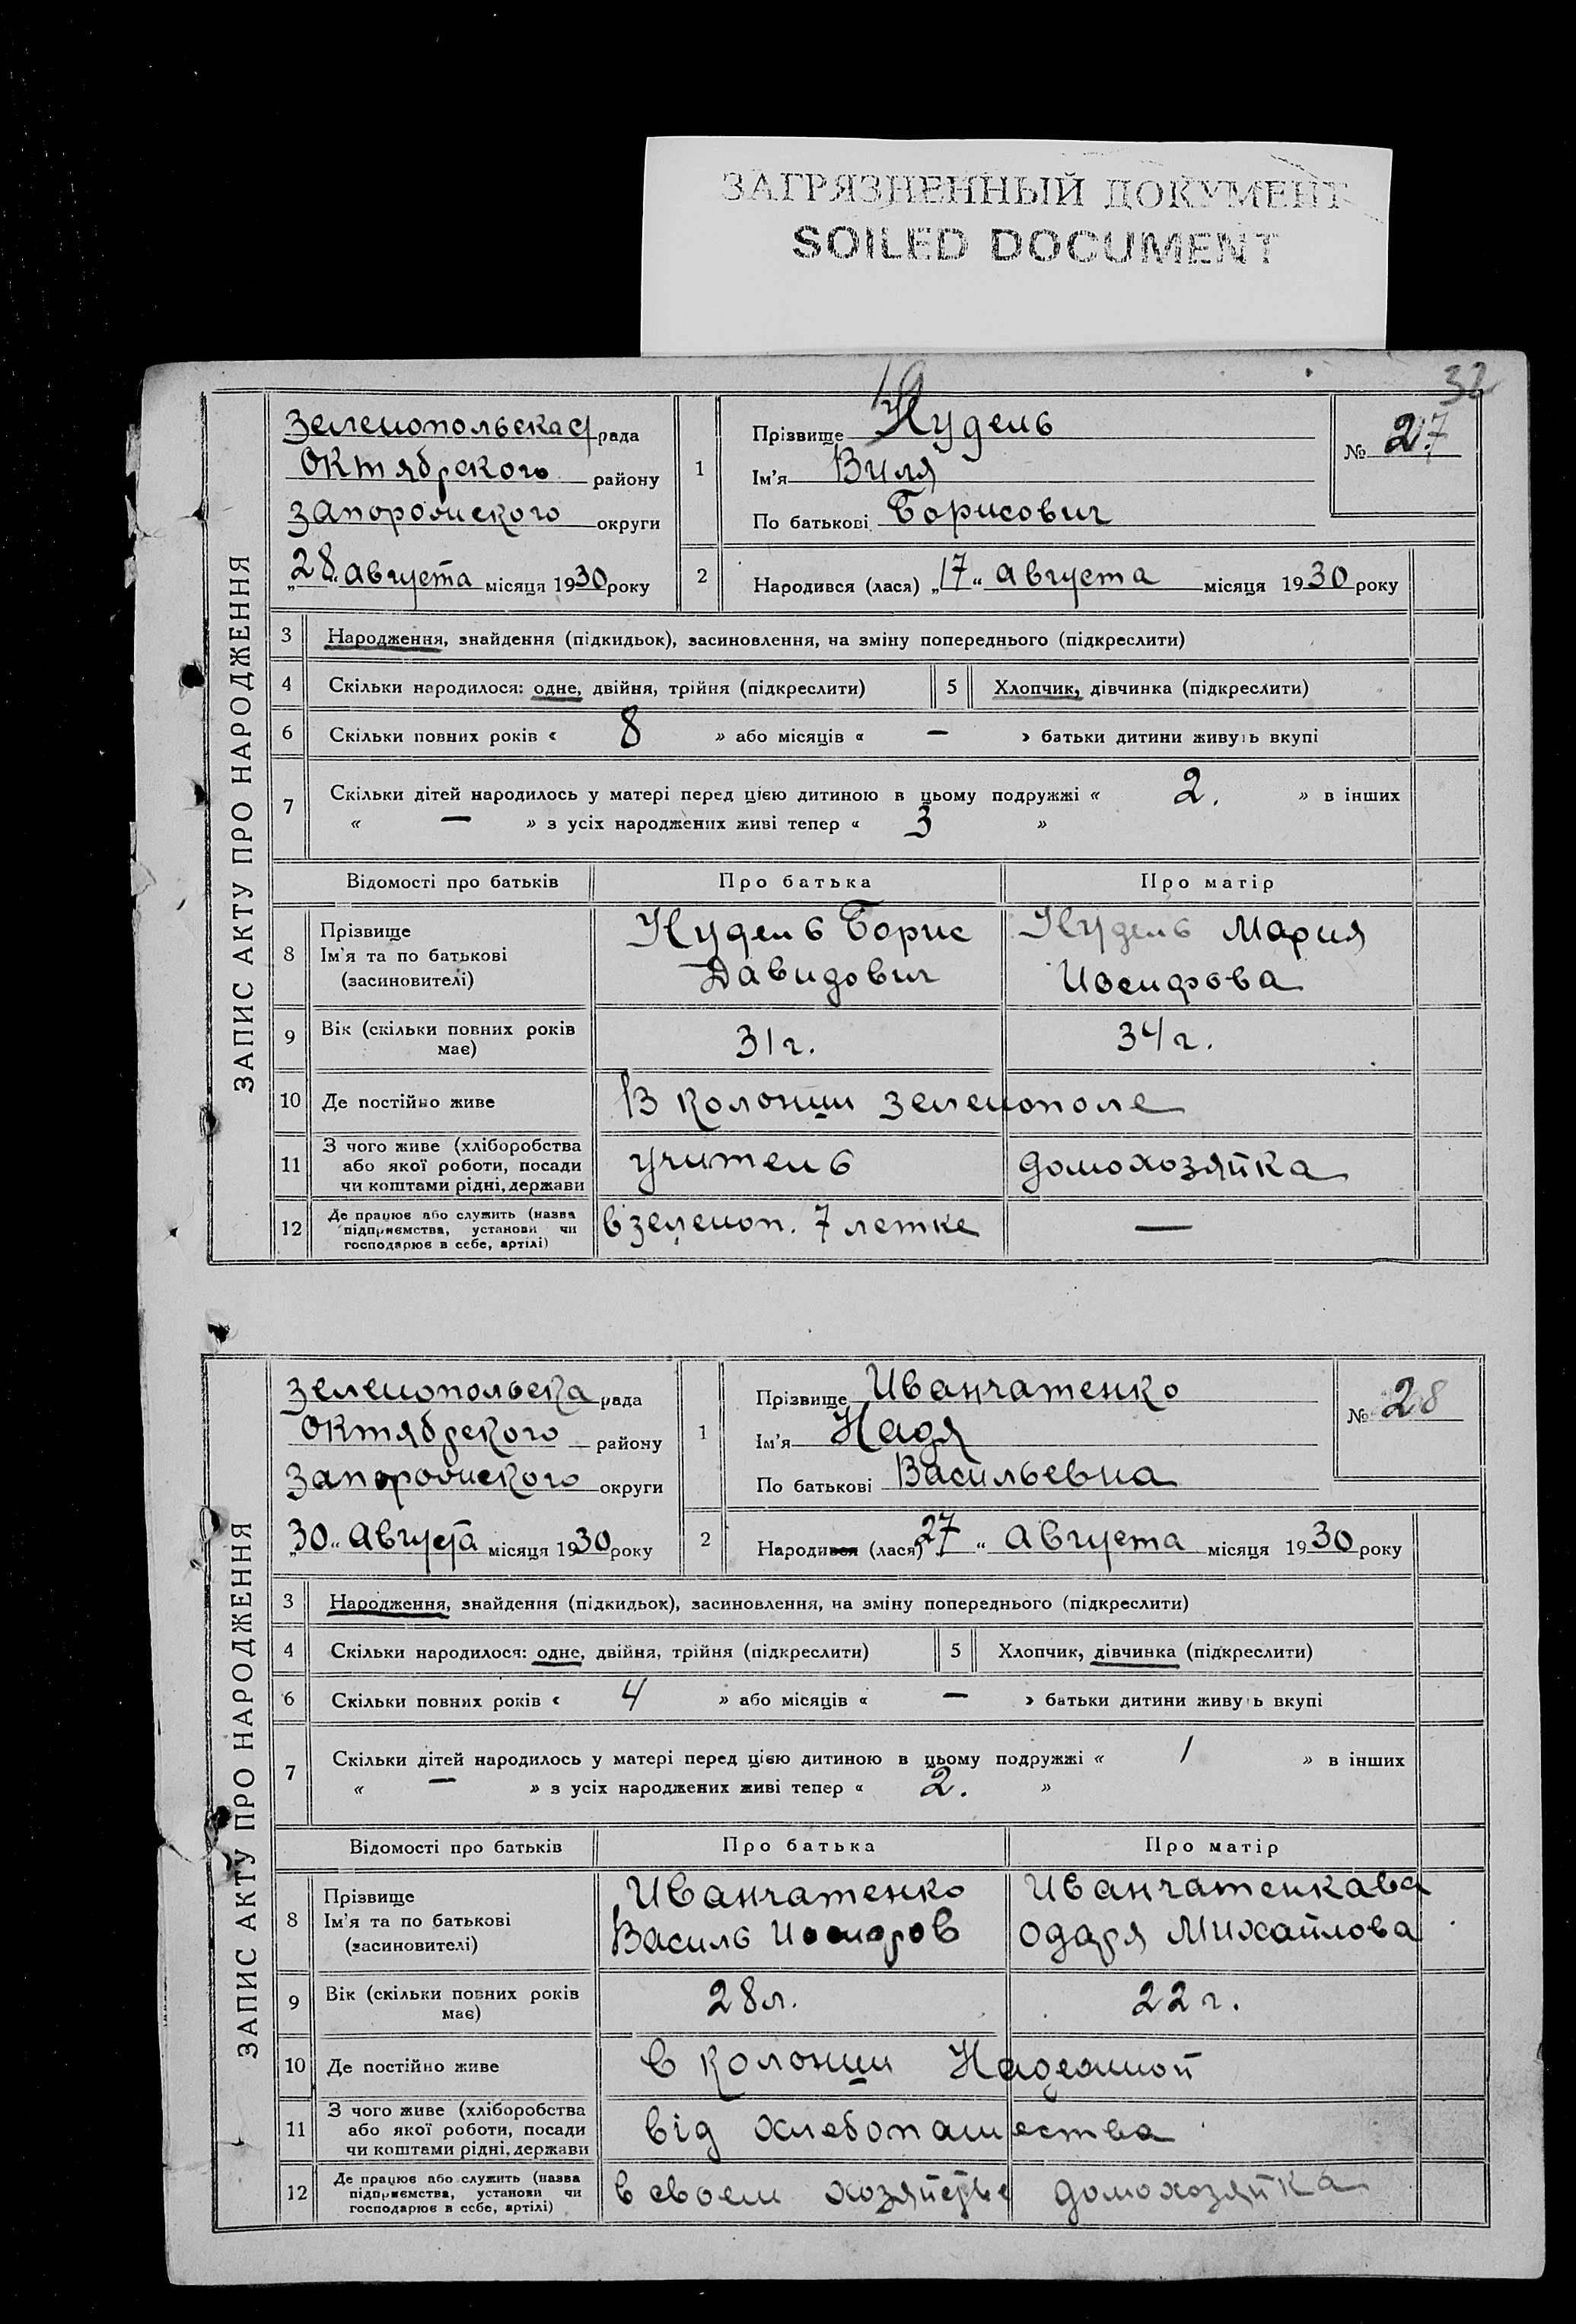 ЗАГРЯЗНЕННЫЙ ДОКУМЕНТ
SOILED DOCUMENT
32
ЗАПИС АКТУ ПРО НАРОДЖЕННЯ
Зеленопольская рада
Октябрского району
Запорожского округи
„28“ августа місяця 1930 року
1
Прізвище Нудель
Ім'я Виля
По батькові Борисович
№ 27
2
Народився (лася) „17“ августа місяця 1930 року
3 Народження, знайдення (підкидьок), засиновлення, на зміну попереднього (підкреслити)
4 Скільки народилося: одне, двійня, трійня (підкреслити) 5 Хлопчик, дівчинка (підкреслити)
6 Скільки повних років « 8 » або місяців « — » батьки дитини живуть вкупі
7 Скільки дітей народилось у матері перед цією дитиною в цьому подружжі « 2. » в інших
« — » з усіх народжених живі тепер « 3 »
Відомості про батьків Про батька Про матір
8 Прізвище
Ім'я та по батькові
(засновителі)
Нудель Борис
Давидович
Нудель Мария
Иосифова
9 Вік (скільки повних років
має)
31 г. 34 г.
10 Де постійно живе В колонии Зеленополе
11 З чого живе (хліборобства
або якої роботи, посади
чи коштами рідні, держави
учитель домохозяйка
12 Де працює або служить (назва
підприємства, установи чи
господарює в себе, артілі)
в зеленоп. 7 летке —
ЗАПИС АКТУ ПРО НАРОДЖЕННЯ
Зеленопольска рада
Октябрского району
Запорожского округи
„30“ августа місяця 1930 року
1
Прізвище Иванчатенко
Ім'я Надя
По батькові Васильевна
№ 28
2
Народився (лася) „27“ августа місяця 1930 року
3 Народження, знайдення (підкидьок), засиновлення, на зміну попереднього (підкреслити)
4 Скільки народилося: одне, двійня, трійня (підкреслити) 5 Хлопчик, дівчинка (підкреслити)
6 Скільки повних років « 4 » або місяців « — » батьки дитини живуть вкупі
7 Скільки дітей народилось у матері перед цією дитиною в цьому подружжі « 1 » в інших
« — » з усіх народжених живі тепер « 2. »
Відомості про батьків Про батька Про матір
8 Прізвище
Ім'я та по батькові
(засиновителі)
Иванчатенко
Василь Иосифов
Иванчатенкава
Одаря Михайлова
9 Вік (скільки повних років
має)
28 л. 22 г.
10 Де постійно живе в колонии Надежной
11 З чого живе (хліборобства
або якої роботи, посади
чи коштами рідні, держави
від хлебопашества
12 Де працює або служить (назва
підприємства, установи чи
господарює в себе, артілі)
в своем хозяйстве домохозяйка